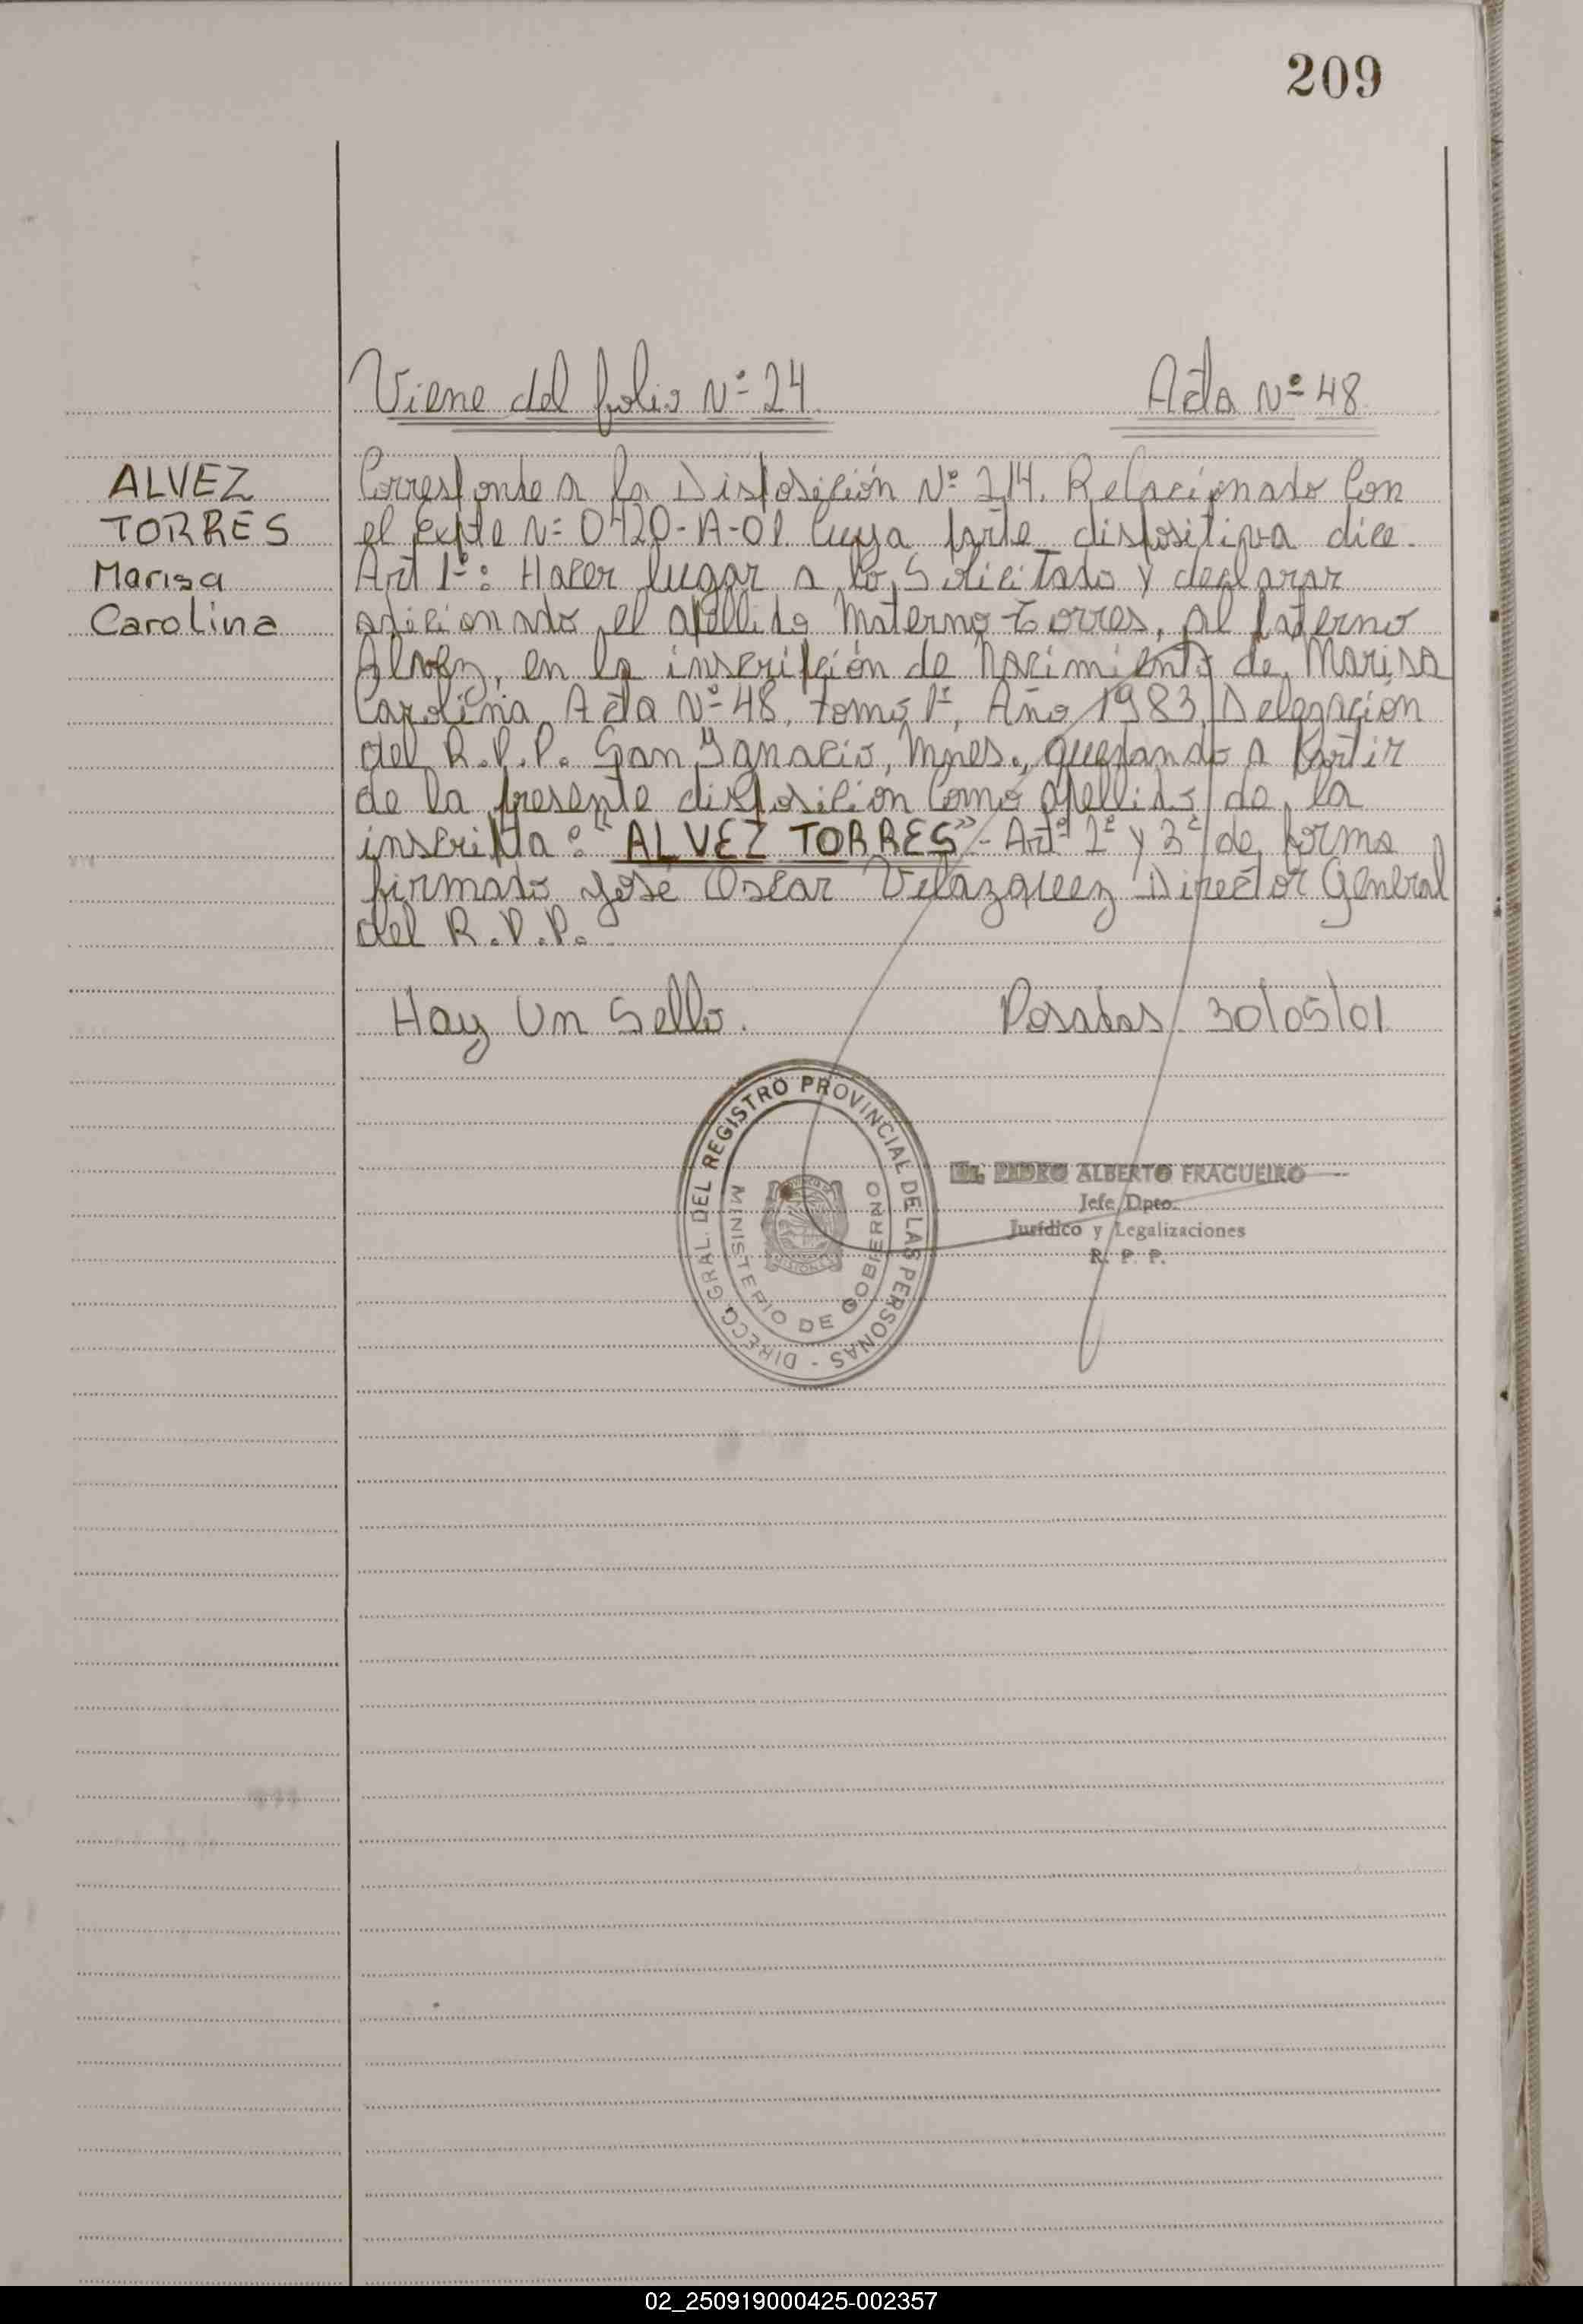 209
Viene del folio Nº 24 Acta Nº 48
ALVEZ
TORRES
Marisa
Carolina
Corresponde a la Disposición Nº 214. Relacionado Con
el Expte Nº 0420-A-01. Cuya parte dispositiva dice.
Art 1º: Hacer lugar a lo Solicitado y declarar
adicionado el apellido Materno Torres, al paterno
Alvez, en la inscripción de Nacimiento de Marisa
Carolina, Acta Nº 48, tomo 1º, Año 1983, Delegación
del R.P.P. San Ignacio, Mnes., quedando a partir
de la presente disposición Como apellido de la
inscripta: "ALVEZ TORRES" - Artº 2º y 3º de forma
firmado José Oscar Velazquez Director General
del R.P.P.
Hay Un Sello. Posadas 30/05/01
DIRECC. GRAL. DEL REGISTRO PROVINCIAL DE LAS PERSONAS -
MINISTERIO DE GOBIERNO
MISIONES
Dr. PEDRO ALBERTO FRAGUEIRO
Jefe Dpto.
Jurídico y Legalizaciones
R. P. P.
02_250919000425-002357